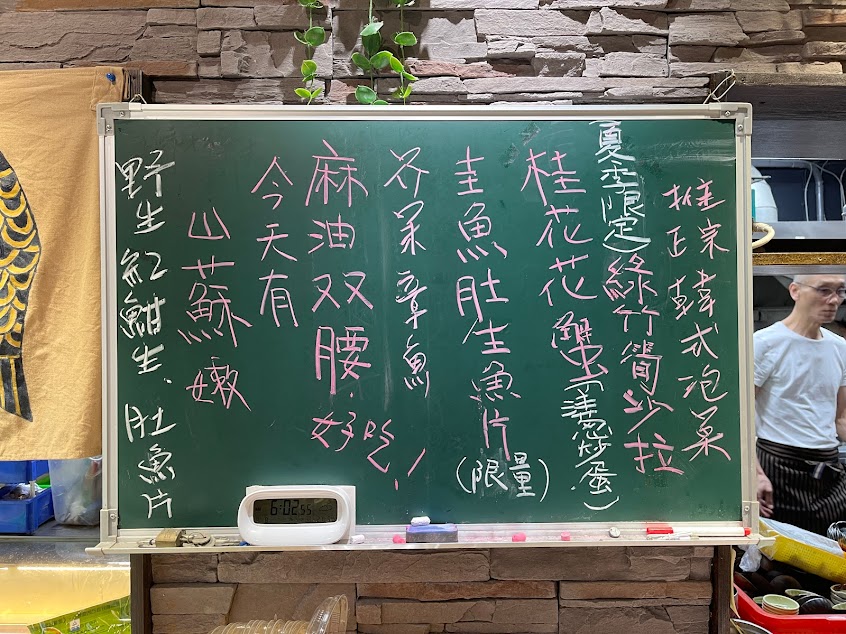 推正宗韓式泡菜
夏季限定 綠竹筍沙拉
桂花花蟹(薑蔥炒蛋)
圭魚肚生魚片(限量)
芥茉章魚
麻油双腰.好吃!
今天有
山蘇嫩
野生紅魽生、肚魚片
6:02 55